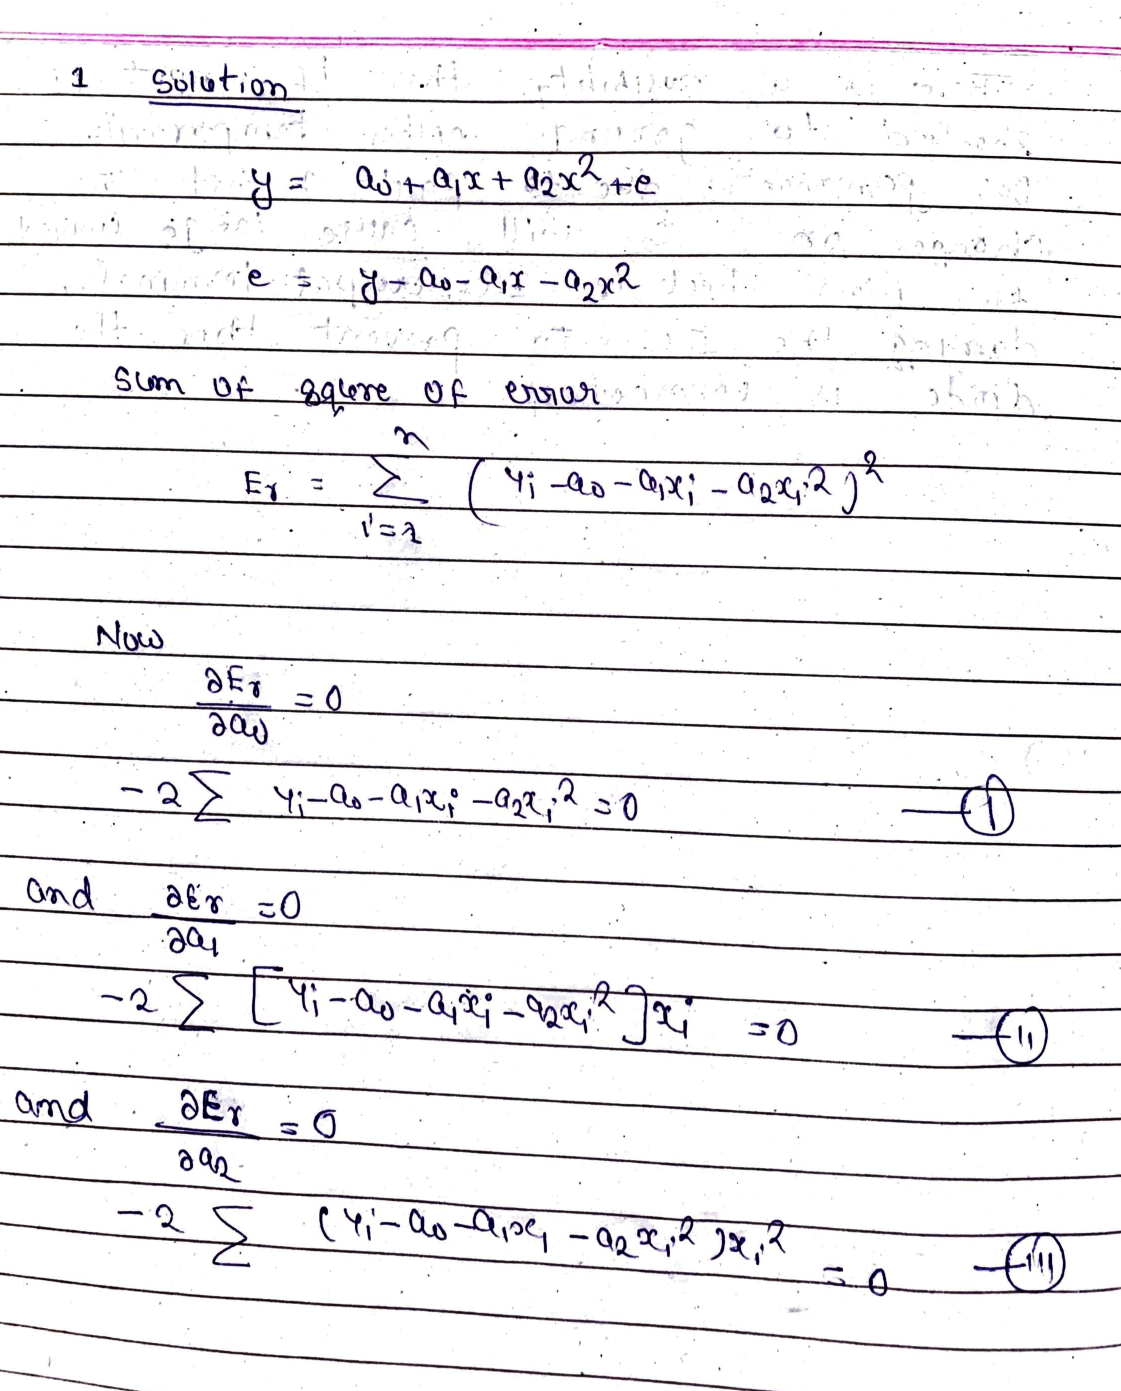 1 Solution
y = a0 + a1x + a2x² + e
e = y - a0 - a1x - a2x²
Sum of squere of error
n
Er = Σ (yi - a0 - a1xi - a2xi²)²
i=1
Now
∂Er
= 0
∂a0
-2 Σ yi - a0 - a1xi - a2xi² = 0 — (I)
and ∂Er = 0
∂a1
-2 Σ [yi - a0 - a1xi - a2xi²] xi = 0 — (II)
and ∂Er = 0
∂a2
-2 Σ (yi - a0 - a1xi - a2xi²) xi²
= 0 — (III)